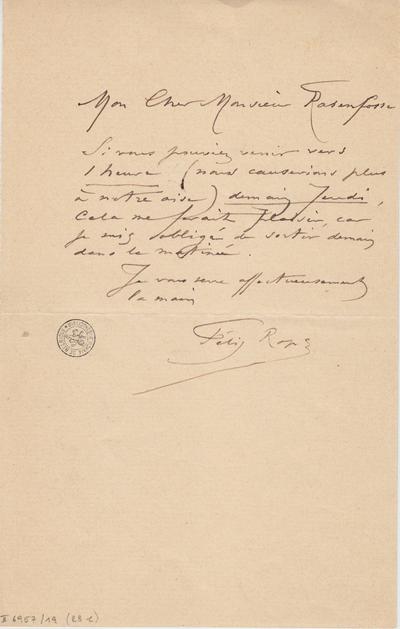 Mon Cher Monsieur Rasenfosse
Si vous pouviez venir vers
1 heure (nous causerions plus
à notre aise) demain Jeudi,
Cela me ferait plaisir, car
je suis obligé de sortir demain
dans la matinée.
Je vous serre affectueusement
la main
Félis Rops
II 6957/19 (28 c)